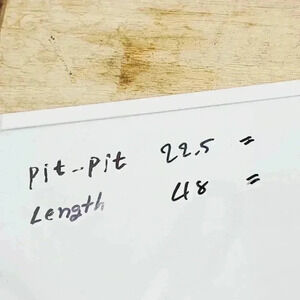 pit-pit 22.5 =
Length 48 =